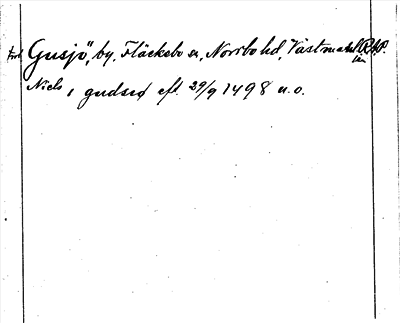 Gusjö, by, Fläckebo sn, Norrbo hd, Västmanl. RAP.
Niels i gudsiø eft. 29/9 1498 u.o.